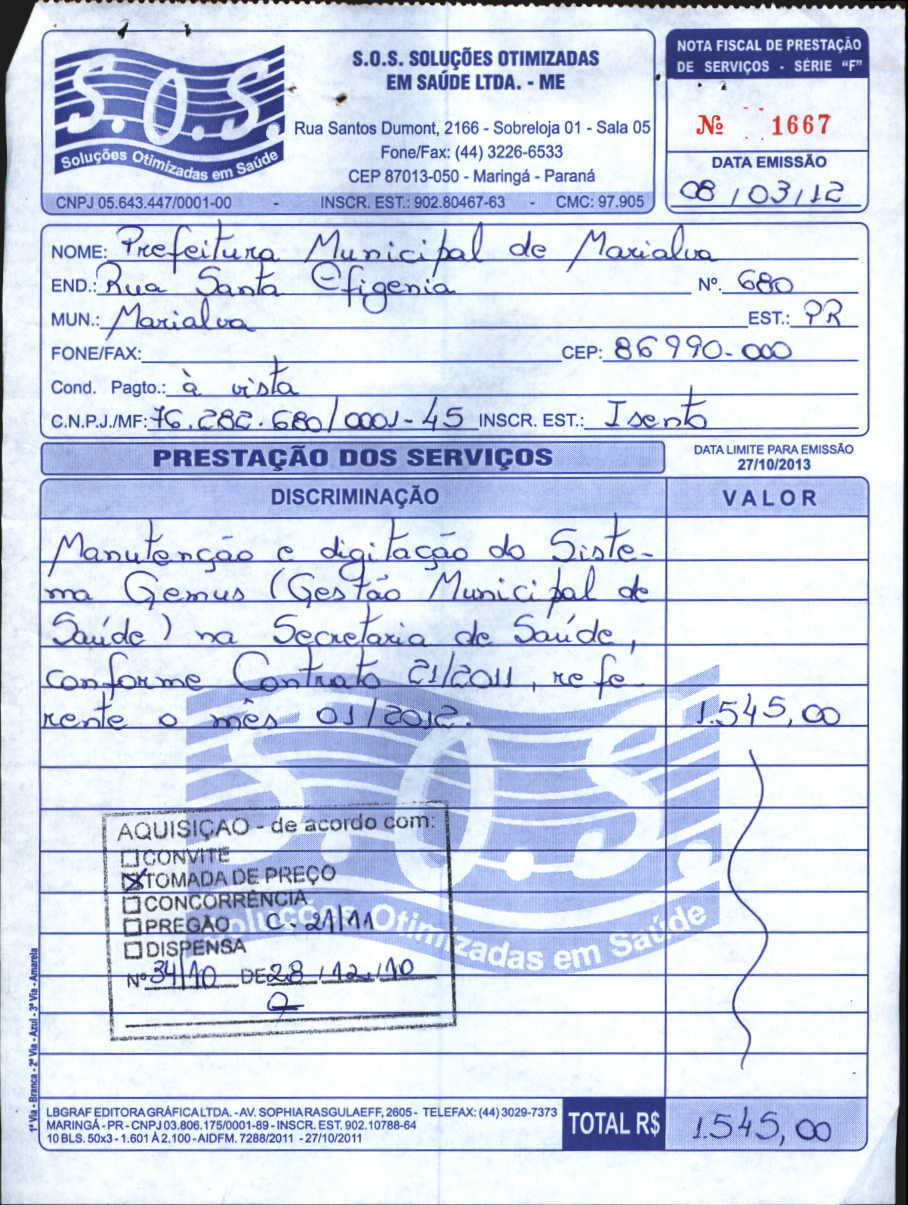 S.O.S.
Soluções Otimizadas em Saúde
S.O.S. SOLUÇÕES OTIMIZADAS
EM SAÚDE LTDA. - ME
Rua Santos Dumont, 2166 - Sobreloja 01 - Sala 05
Fone/Fax: (44) 3226-6533
CEP 87013-050 - Maringá - Paraná
CNPJ 05.643.447/0001-00 - INSCR. EST.: 902.80467-63 - CMC: 97.905
NOTA FISCAL DE PRESTAÇÃO
DE SERVIÇOS - SÉRIE "F"
Nº 1667
DATA EMISSÃO
08/03/12
NOME: Prefeitura Municipal de Marialva
END.: Rua Santa Efigenia Nº. 680
MUN.: Marialva EST.: PR
FONE/FAX: CEP: 86990-000
Cond. Pagto.: à vista
C.N.P.J./MF: 76.282.680/0001-45 INSCR. EST.: Isento
PRESTAÇÃO DOS SERVIÇOS
DATA LIMITE PARA EMISSÃO
27/10/2013
DISCRIMINAÇÃO VALOR
Manutenção e digitação do Siste-
ma Gemus (Gestão Municipal de
Saúde) na Secretaria de Saúde,
conforme Contrato 21/2011, refe-
rente o mês 01/2012. 1.545,00
S.O.S.
Soluções Otimizadas em Saúde
AQUISIÇÃO - de acordo com:
CONVITE
TOMADA DE PREÇO
CONCORRÊNCIA
PREGÃO C. 21/11
DISPENSA
Nº 34/10 DE 28/12/10
1ª Via - Branca - 2ª Via - Azul - 3ª Via - Amarela
LBGRAF EDITORA GRÁFICA LTDA. - AV. SOPHIA RASGULAEFF, 2605 - TELEFAX: (44) 3029-7373
MARINGÁ - PR - CNPJ 03.806.175/0001-89 - INSCR. EST. 902.10788-64
10 BLS. 50x3 - 1.601 À 2.100 - AIDFM. 7288/2011 - 27/10/2011
TOTAL R$ 1.545,00